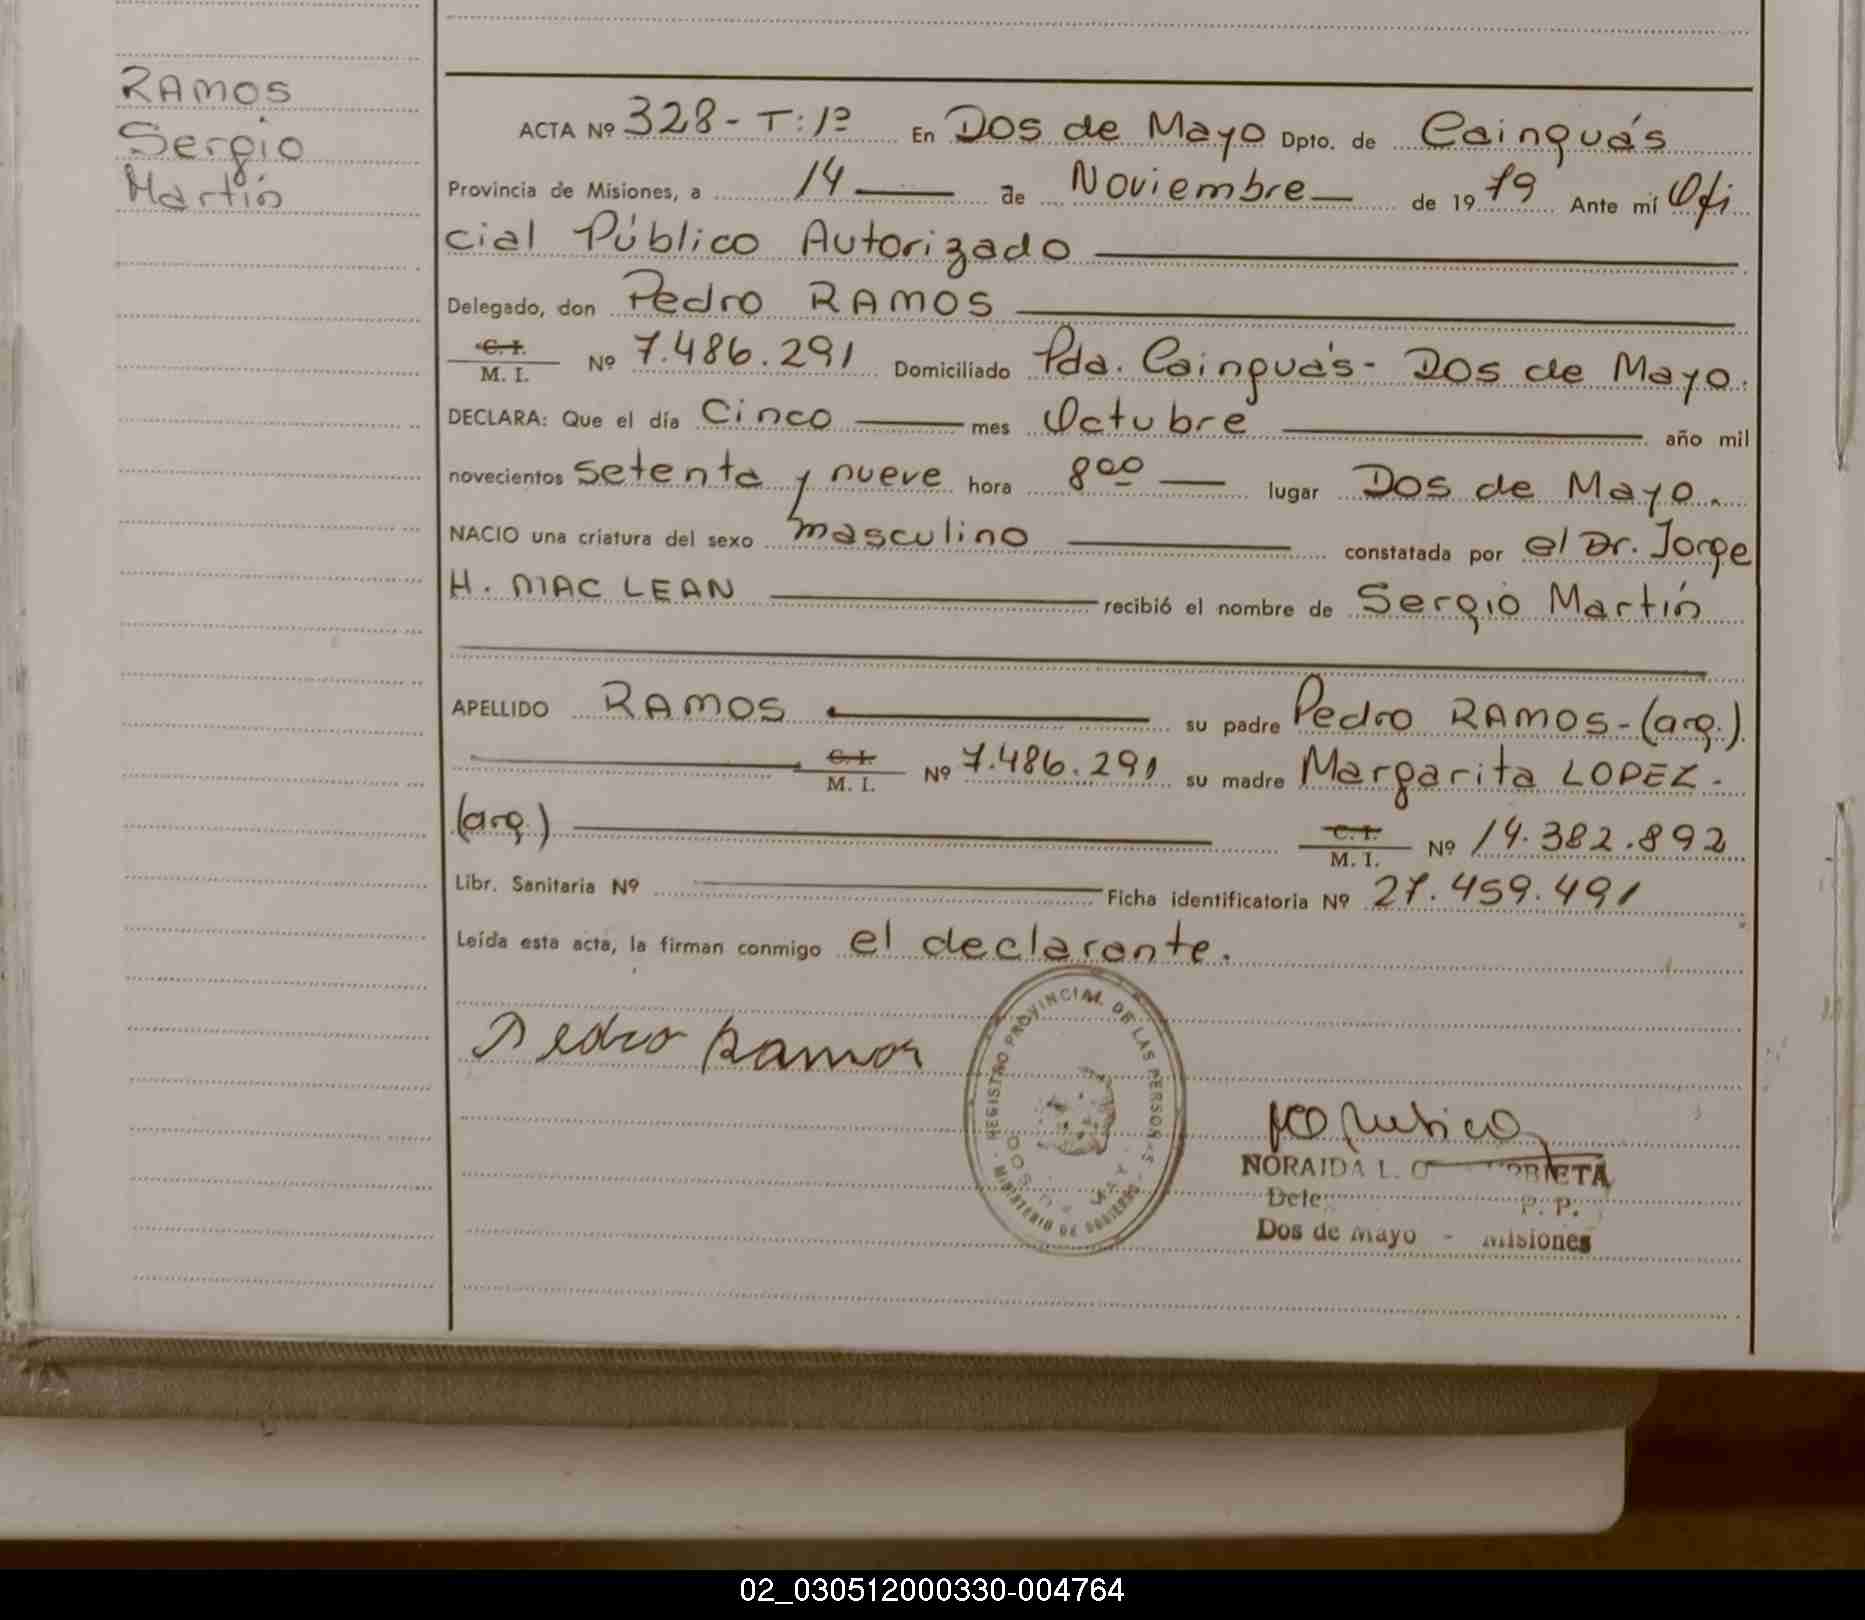 RAMOS
Sergio
Martín
ACTA Nº 328 - T: 1º En Dos de Mayo Dpto. de Cainguás
Provincia de Misiones, a 14 de Noviembre de 1979 Ante mí Ofi
cial Público Autorizado
Delegado, don Pedro RAMOS
C. I.
M. I. Nº 7.486.291 Domiciliado Pda. Cainguás - Dos de Mayo.
DECLARA: Que el día Cinco mes Octubre año mil
novecientos setenta y nueve hora 8 00 lugar Dos de Mayo.
NACIO una criatura del sexo masculino constatada por el Dr. Jorge
H. MAC LEAN recibió el nombre de Sergio Martín
APELLIDO RAMOS su padre Pedro RAMOS - (arg.)
C. I.
M. I. Nº 7.486.291 su madre Margarita LOPEZ -
(arg.) C. I.
M. I. Nº 14.382.892
Libr. Sanitaria Nº Ficha identificatoria Nº 27.459.491
Leída esta acta, la firman conmigo el declarante.
Pedro Ramos
REGISTRO PROVINCIAL DE LAS PERSONAS
MINISTERIO DE GOBIERNO
NORAIDA L.
Dele P. P.
Dos de Mayo - Misiones
02_030512000330-004764